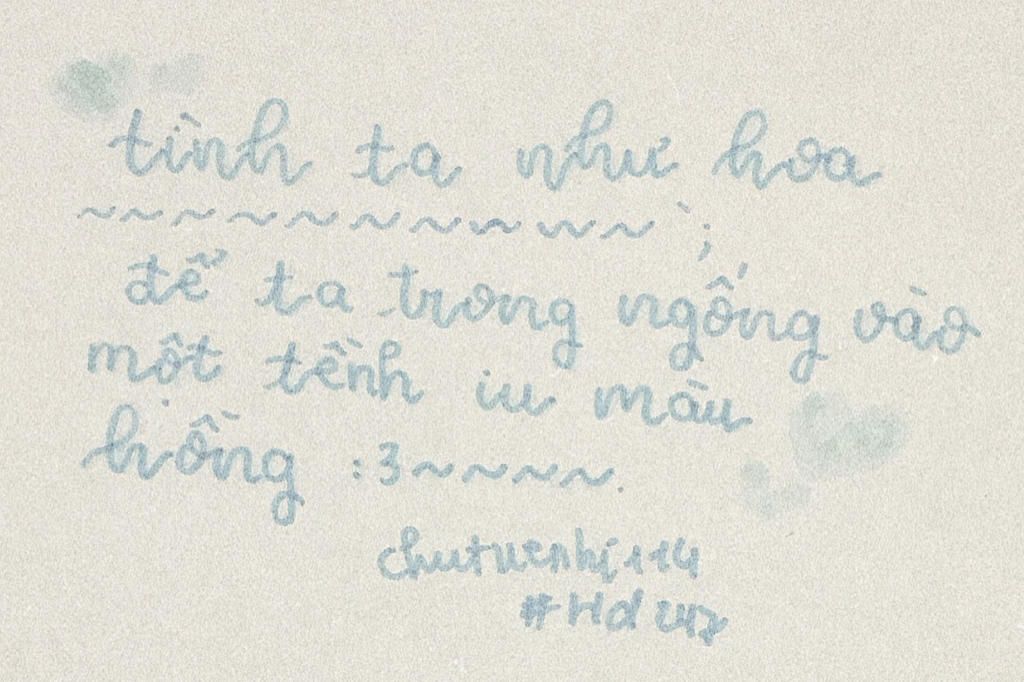 tình ta như hoa
~~~~~~~~~~~ ;
để ta trong ngống vào
một tềnh iu màu
hồng :3~~~~~.
#Hd